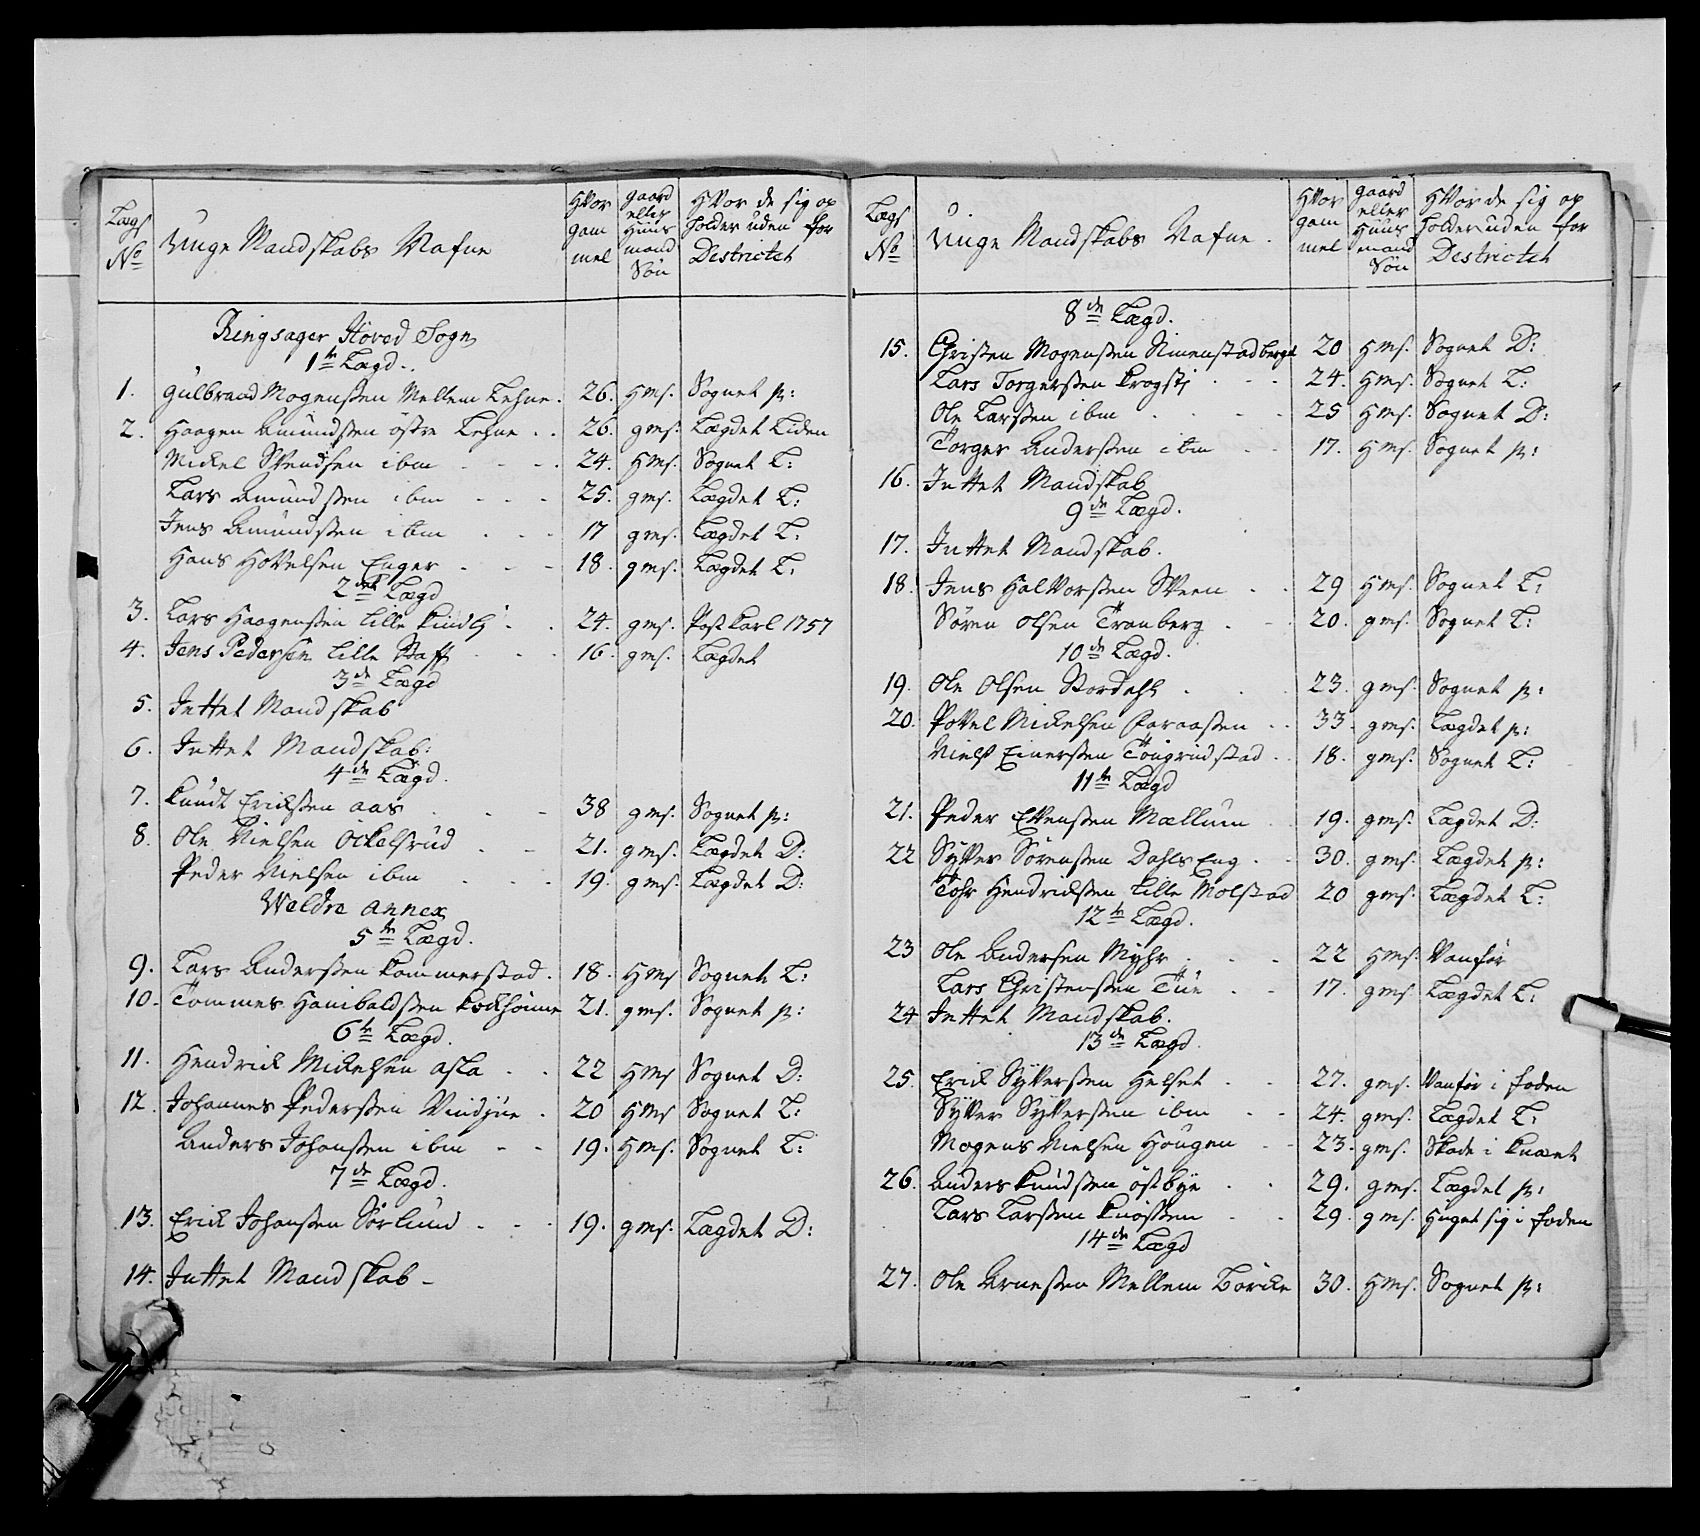 Lægs No
Unge Mandskabs Nafne
Hvor gam mel
gaard eller Huus mand Søn
Hvor de sig op holder uden for Destrictet
Ringsager Hoved Sogn
1te Lægd.
1. Gulbrand Mogenssen Mellem Lehne. 26. Hms. Sognet p:
2. Haagen Amundssen østre Lehne . . 26. gms. Lægdet Liden
Mickel Svendsen ibm . . . 24. Hms. Sognet L:
Lars Amundssen ibm . . . 25. gms. Lægdet L:
Jens Amundssen ibm . . . 17 gms. Lægdet L:
Hans Hovelsen Enger . . . 18. gms. Lægdet L:
2den Lægd
3. Lars Haagenssen Lille . . 24. gms. Post Karl 1757
4. Jens Pedersen Lille Staff . . . 16. gms. Lægdet
3de Lægd
5. Inttet Mandskab
6. Inttet Mandskab:
4de Lægd.
7. Knudt Erickssen Aas . . . 38 gms. Sognet p:
8. Ole Nielsen Öckelsrud . . 21. gms. Lægdet D:
Peder Nielsen ibm . . . 19. gms. Lægdet D:
Weldre Annex
5te Lægd.
9. Lars Anderssen Kammerstad. 18. Hms Sognet L:
10. Tommes Hanibaldssen 21. gms. Sognet p:
6te Lægd.
11. Hendrick Mickelsen Asla . . 22 Hms Sognet D:
12. Johannes Pederssen Vindjue . 20 Hms Sognet L:
Anders Johanssen ibm - - 19. Hms. Sognet L:
7de Lægd.
13. Erick Johanssen Sørlund . . . 19. gms. Lægdet D:
14. Inttet Mandskab -
Lægs No
Unge Mandskabs Nafne.
Hvor gam mel
gaard eller Huus mand Søn
Hvor de sig op holder uden for Destrictet
8de Lægd.
15. Christen Mogenssen 20 Hms. Sognet D:
Lars Torgerssen Krogstj . . . 24. Hms. Sognet L:
Ole Larssen ibm . . . . 25 Hms. Sognet D:
Torger Anderssen ibm . . 17. Hms. Sognet p:
16. Inttet Mandskab
9de Lægd.
17. Inttet Mandskab.
18. Jens Halvorssen Sveen . . 29 Hms. Sognet L:
Sören Olsen Tranberg . . . 20. gms. Sognet L:
10de Lægd.
19. Ole Olsen Stordahl . . . 23. gms. Sognet p:
20. Povel Mickelsen . . 33. gms. Lægdet p:
Niels Einerssen . . 18. gms. Sognet L:
11te Lægd
21. Peder Evenssen Mællum . . 19. gms. Lægdet D:
22 Syver Sörenssen Dahls Eng . . 30. gms. Lægdet p:
Tohr Hendrickssen Lille Molstad 20 gms. Lægdet L:
12te Lægd.
23 Ole Andersen Myhr . . . 22 Hms. Vanför
Lars Christenssen Tue . . 17. gms. Lægdet L:
24 Inttet Mandskab.
13de Lægd.
25. Erick Syverssen Helset . . 27. gms. Vanför i foden
Syver Syverssen ibm . . 24. gms. Lægdet L:
Mogens Nielsen Hougen . . 23. gms. Skade i Knæet
26. Anders Knudssen östbye . . 29. gms. Lægdet p:
Lars Larssen Knössen . . 29. gms. Huget sig i foden
14de Lægd
27. Ole Arnessen Mellem Börcke 30. Hms. Sognet p: